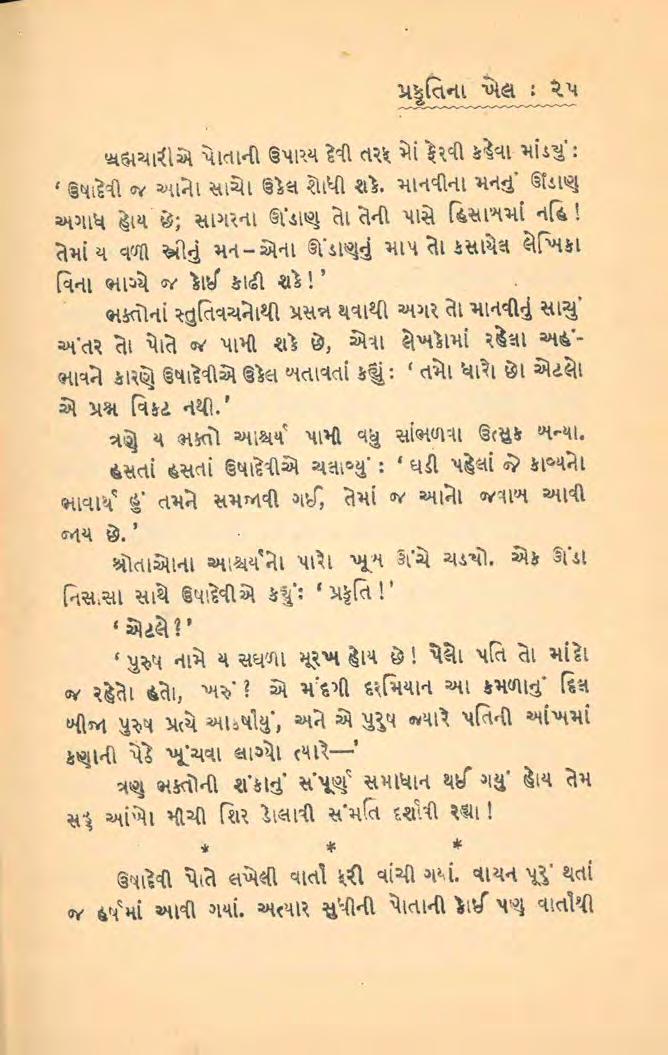 પ્રકૃતિના ખેલ : ૨૫
બ્રહ્મચારીએ પોતાની ઉપાસ્ય દેવી તરફ મોં ફેરવી કહેવા માંડ્યું :
‘ ઉષાદેવી જ આનો સાચો ઉકેલ શોધી શકે. માનવીના મનનું ઊંડાણ
અગાધ હોય છે; સાગરના ઊંડાણ તો તેની પાસે હિસાબમાં નહિ !
તેમાં ય વળી સ્ત્રીનું મન–એના ઊંડાણનું માપ તો કસાયેલ લેખિકા
વિના ભાગ્યે જ કોઈ કાઢી શકે ! ’
ભક્તોનાં સ્તુતિવચનોથી પ્રસન્ન થવાથી અગર તો માનવીનું સાચું
અંતર તો પોતે જ પામી શકે છે, એવા લેખકોમાં રહેલા અહં-
ભાવને કારણે ઉષાદેવીએ ઉકેલ બતાવતાં કહ્યું : ‘ તમો ધારો છો એટલો
એ પ્રશ્ન વિકટ નથી. ’
ત્રણે ય ભક્તો આશ્ચર્ય પામી વધુ સાંભળવા ઉત્સુક બન્યા.
હસતાં હસતાં ઉષાદેવીએ ચલાવ્યું : ‘ ઘડી પહેલાં જે કાવ્યનો
ભાવાર્થ હું તમને સમજાવી ગઈ, તેમાં જ આનો જવાબ આવી
જાય છે. ’
શ્રોતાઓના આશ્ચર્યનો પારો ખૂબ ઊંચે ચડ્યો. એક ઊંડા
નિસાસા સાથે ઉષાદેવીએ કહ્યું: ‘ પ્રકૃતિ ! ’
‘ એટલે ? ’
‘ પુરુષ નામે ય સઘળા મૂરખ હોય છે ! પેલો પતિ તો માંદો
જ રહેતો હતો, ખરું ? એ મંદગી દરમિયાન આ કમળાનું દિલ
બીજા પુરુષ પ્રત્યે આકર્ષાયું, અને એ પુરુષ જ્યારે પતિની આંખમાં
કણાની પેઠે ખૂંચવા લાગ્યો ત્યારે—’
ત્રણ ભક્તોની શંકાનું સંપૂર્ણ સમાધાન થઈ ગયું હોય તેમ
સહુ આંખો મીચી શિર ડોલાવી સંમતિ દર્શાવી રહ્યા !
* * *
ઉષાદેવી પોતે લખેલી વાર્તા ફરી વાંચી ગયાં. વાચન પૂરું થતાં
જ હર્ષમાં આવી ગયાં. અત્યાર સુધીની પોતાની કોઈ પણ વાર્તાથી